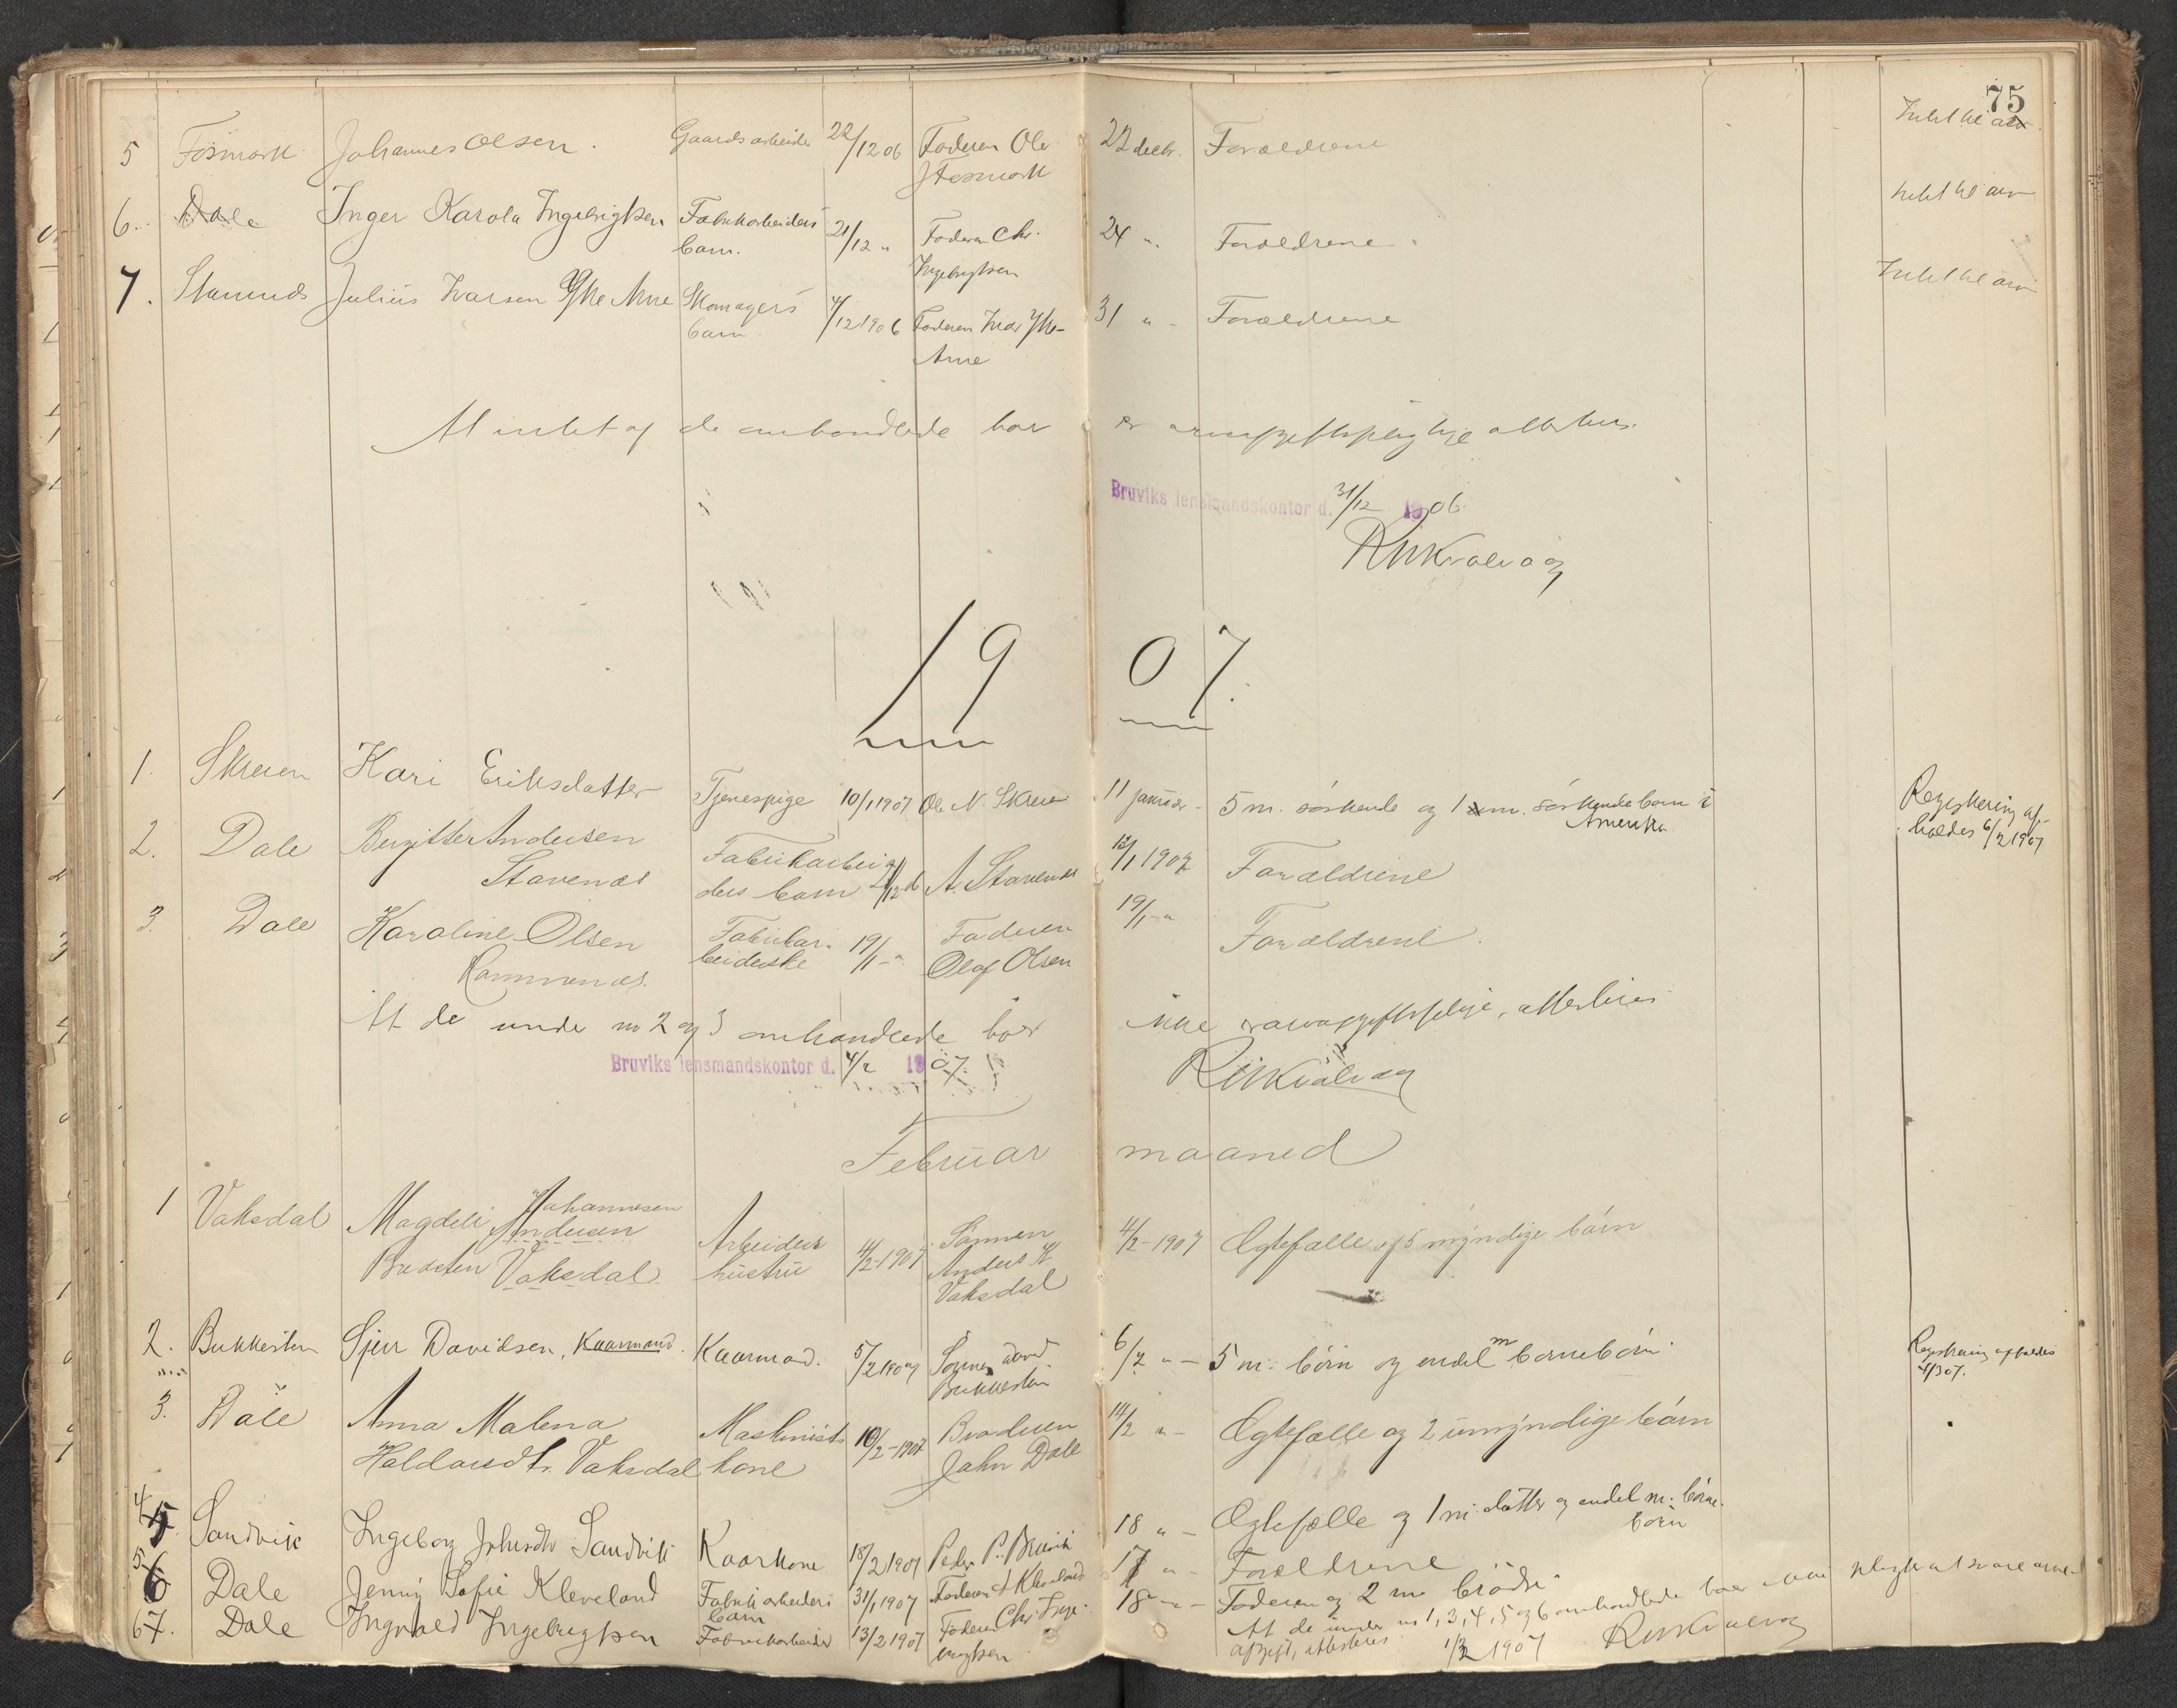 75
5 Fosmark Johannes Olsen. Gaardsarbeider 22/12 06 Faderen Ole 22 decbr. Forældrene Intet til arv
J Fosmark
6. Dale Inger Karola Ingebrigtsen Fabrikarbeiders 21/12 " Faderen Chr. 24 " Forældrene. Intet til arv
barn. Ingebrigtsen
7. Stamnes Julius Ivarsen Ytre Arne Skomagers 4/12 1906 Faderen Ivar Ytre 31 " - Forældrene Intet til arv
barn Arne
At intet af de omhandlede boer er arveafgiftspligtige attesteres.
Bruviks lensmandskontor d. 31/12 1906
19 07.
1. Skreien Kari Eriksdatter Tjenespige 10/1 1907 Ole N. Skreien 11 januar - 5 m. søskende og 1 m. søskendebarn i Registrering af-
Amerika holdes 6/2 1907
2. Dale Bergitte Andersen Fabrikarbei- A. Stavenæs 12/1 1907 Forældrene
Stavenæs ders barn
3. Dale Karoline Olsen Fabrikar- 19/1 - " Faderen 19/1 - " Forældrene.
Rammenæs. beiderske Olaf Olsen
At de under no 2 og 3 omhandlede boer ikke er arveafgiftspligtige, attesteres
Bruviks lensmandskontor d. 4/2 1907.
Februar maaned
1 Vaksdal Magdeli Johannesen
Andersen Arbeiders 4/2-1907 Sønnen 4/2-1907 Ægtefælle og 5 myndige børn
Vaksdal hustru Anders
Vaksdal
2. Bukkesten Sjur Davidsen, Kaarmand. Kaarmand. 5/2 1907 Sønnen David 6/2 " - 5 m. børn og endel m børnebørn. Registrering afholdes
Bukkesten 4/3 07.
3. Dale Anna Malena Maskinist 10/2-1907 Broderen 14/2 " - Ægtefælle og 2 umyndige børn
Haldorsdtr. Vaksdal kone John Dale
4 Sandvik Ingeborg Johsdtr Sandvik Kaarkone 15/2 1907 Peder P. Bruvik 18 " - Ægtefælle og 1 m. datter og endel m. børne-
børn
5 6 Dale Jenny Sofie Kleveland Fabrikarbeiders 31/1 1907 Faderen A Kleveland 17 " - Forældrene
barn
67. Dale Ingvald Ingebrigtsen Fabrikarbeider 13/2 1907 Faderen Chr. Inge- 18 " - Faderen og 2 m brødre
brigtsen
At de under no 1, 3, 4, 5 og 6 omhandlede boer
afgift, attesteres 1/3 1907